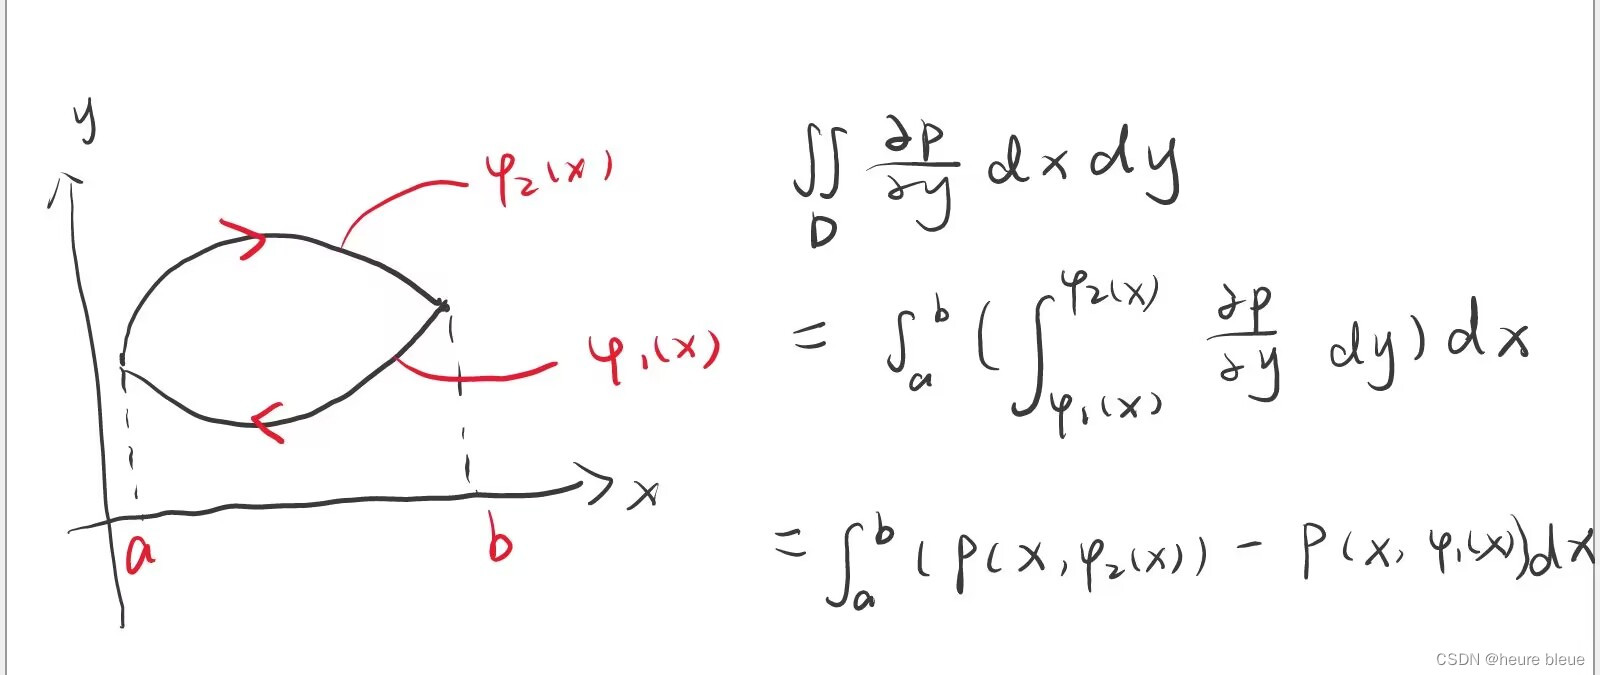 y
φ₂(x)
φ₁(x)
x
a
b
∬_D ∂p/∂y dxdy
= ∫_a^b ( ∫_{φ₁(x)}^{φ₂(x)} ∂p/∂y dy) dx
= ∫_a^b (p(x,φ₂(x)) - p(x, φ₁(x))dx
CSDN @heure bleue